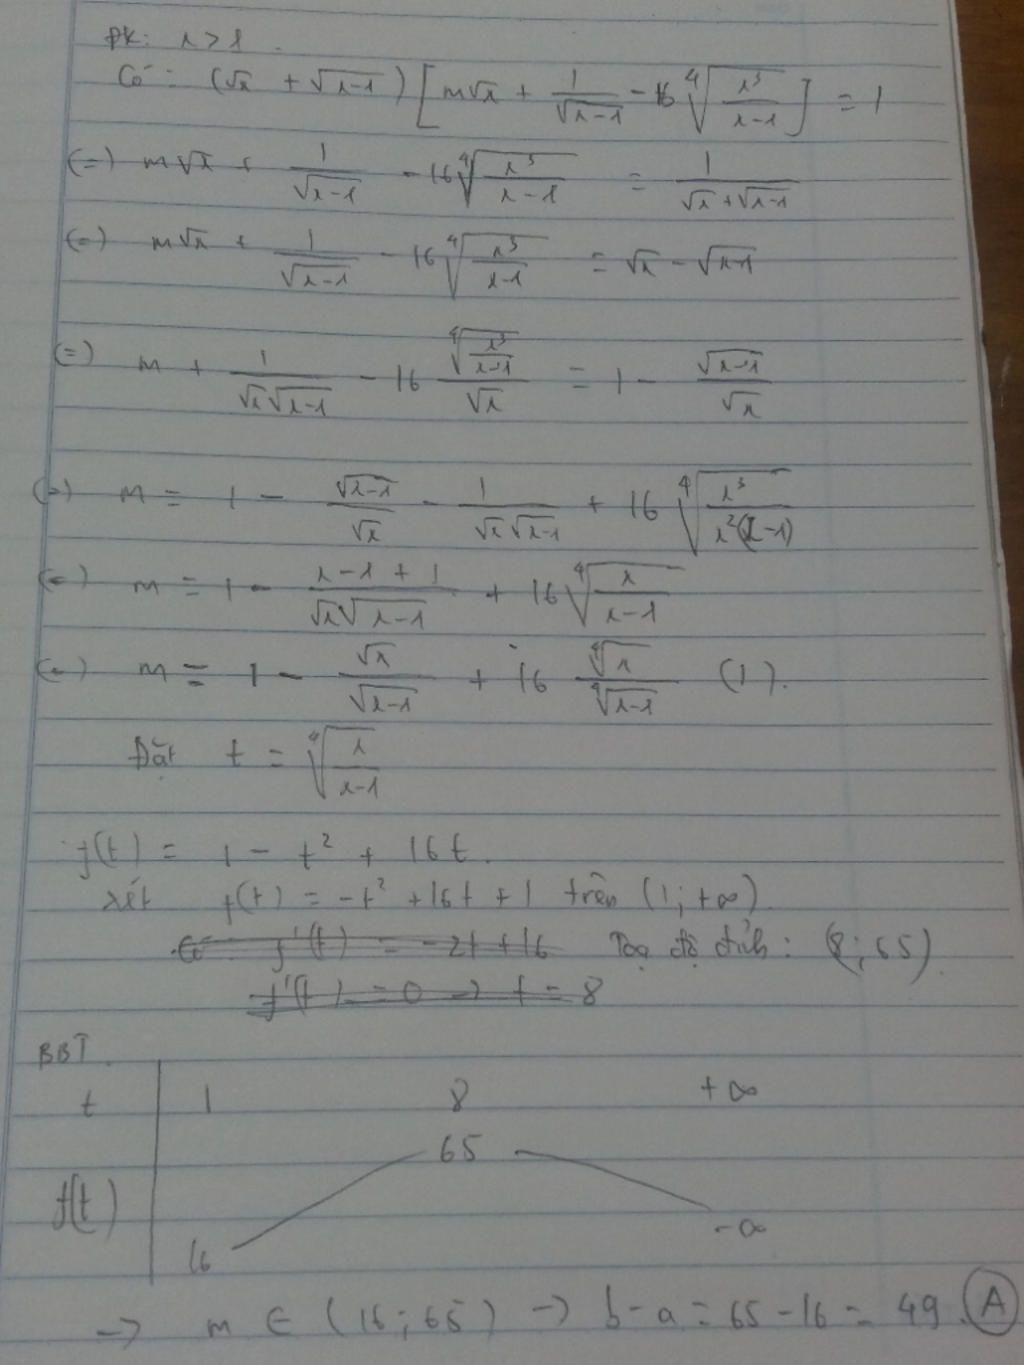 ĐK: x > 1.
Có: (√x + √(x-1)) [m√x + 1/√(x-1) - 16 ∜(x³/(x-1))] = 1
(=) m√x + 1/√(x-1) - 16 ∜(x³/(x-1)) = 1/(√x + √(x-1))
(=) m√x + 1/√(x-1) - 16 ∜(x³/(x-1)) = √x - √(x-1)
(=) m + 1/(√x√(x-1)) - 16 ∜(x³/(x-1))/√x = 1 - √(x-1)/√x
(=) m = 1 - √(x-1)/√x - 1/(√x√(x-1)) + 16 ∜(x³/(x²(x-1)))
(=) m = 1 - (x-1+1)/(√x√(x-1)) + 16 ∜(x/(x-1))
(=) m = 1 - √x/√(x-1) + 16 ∜x/∜(x-1) (1).
Đặt t = ∜(x/(x-1))
f(t) = 1 - t² + 16t.
xét f(t) = -t² + 16t + 1 trên (1; +∞)
Có f'(t) = -2t + 16 Toạ độ đỉnh: (8; 65)
f'(t) = 0 → t = 8
BBT.
t 1 8 +∞
f(t) 16 65 -∞
→ m ∈ (16; 65) → b - a = 65 - 16 = 49. A